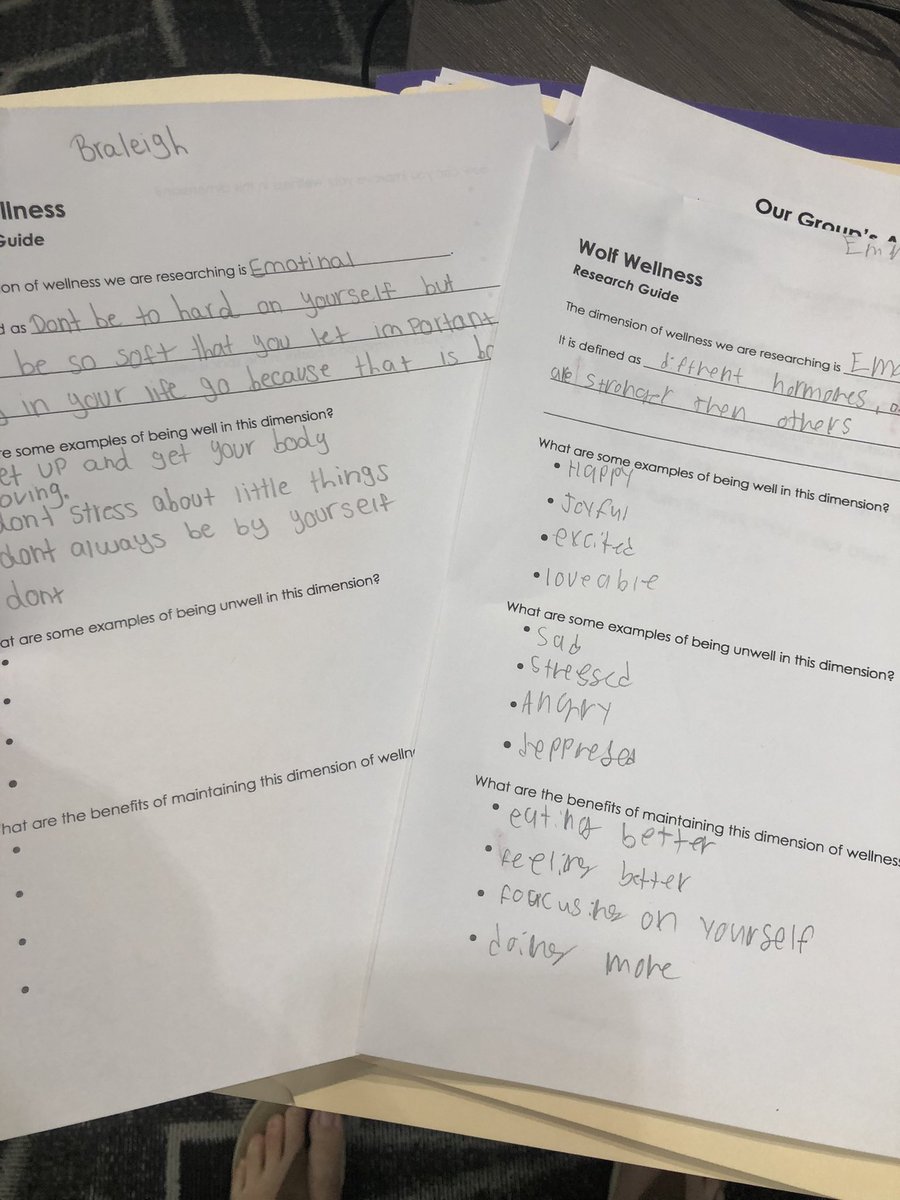 Braleigh
llness
Guide
on of wellness we are researching is Emotinal.
d as Dont be to hard on yourself but
be so soft that you let important
g in your life go because that is
re some examples of being well in this dimension?
et up and get your body
oving.
dont stress about little things
dont always be by yourself
dont
at are some examples of being unwell in this dimension?
hat are the benefits of maintaining this dimension of welln
Our Group's A
Wolf Wellness
Research Guide
The dimension of wellness we are researching is Emo
It is defined as diffrent hormones,
are stronger then others
What are some examples of being well in this dimension?
• Happy
• Joyful
• excited
• loveable
What are some examples of being unwell in this dimension?
• Sad
• Stressed
• Angry
• deppresed
What are the benefits of maintaining this dimension of wellness
• eating better
• feeling better
• foucusing on yourself
• doing more